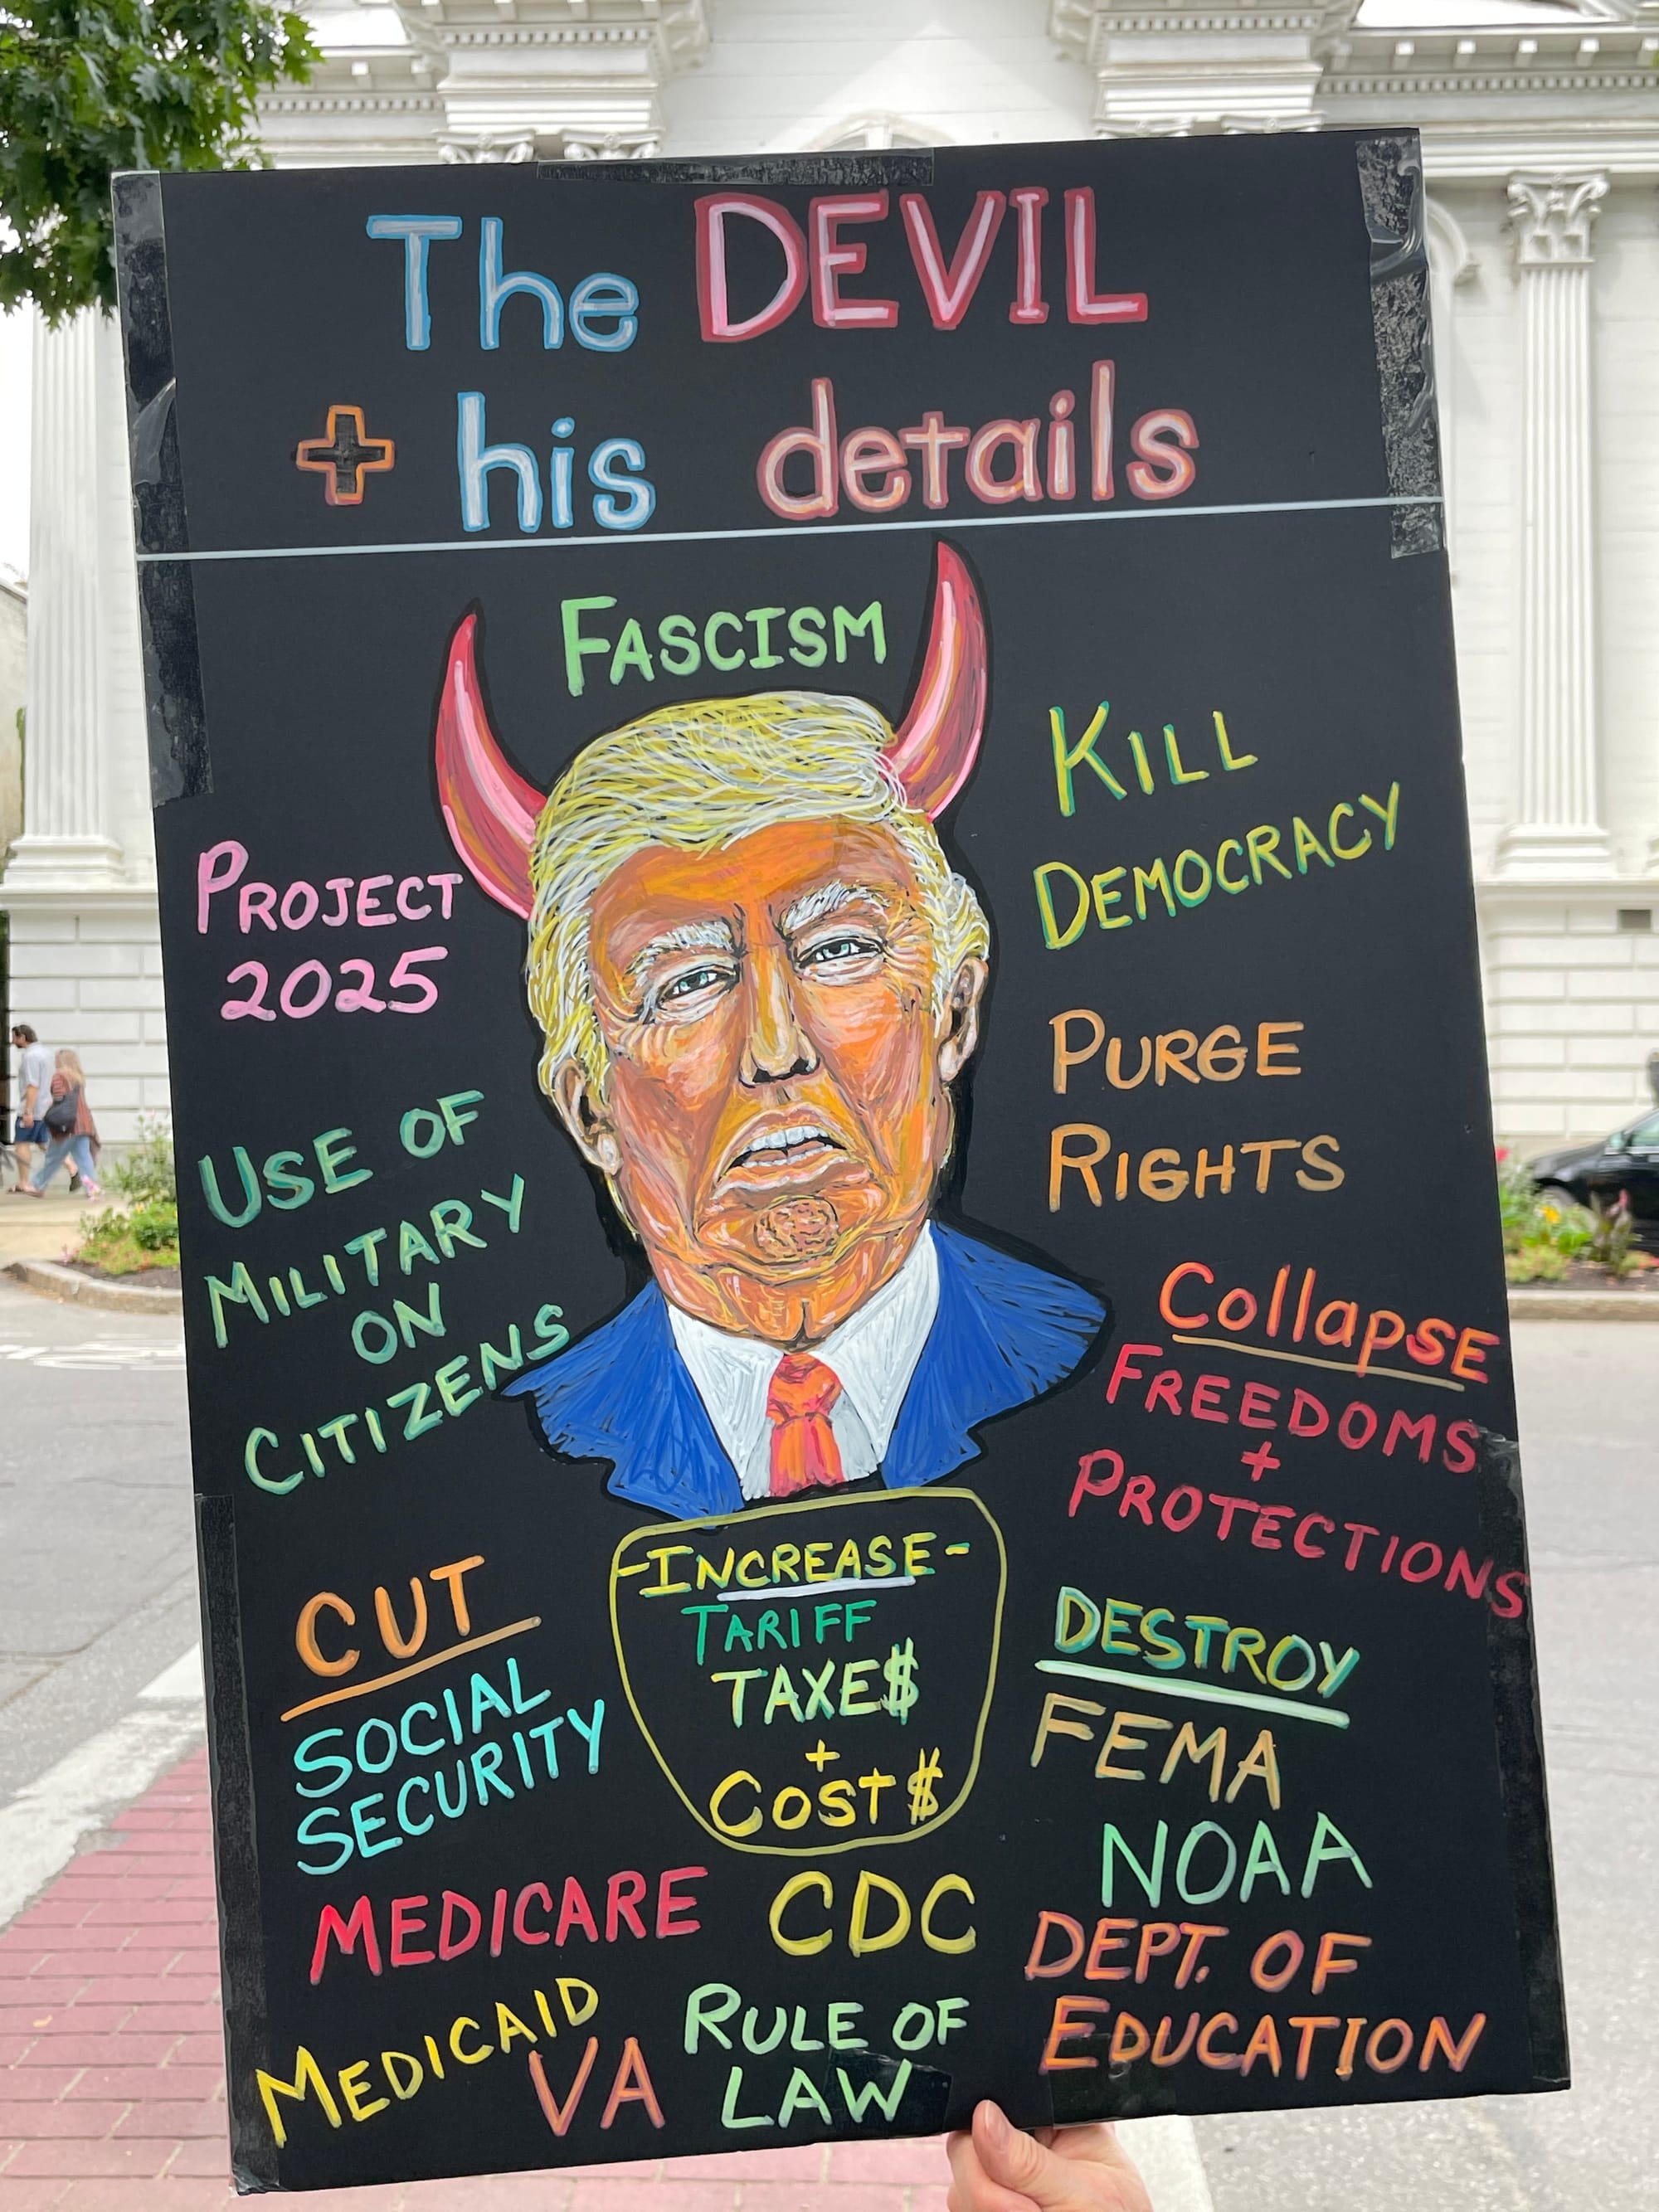 The DEVIL
+ his details
FASCISM
KILL
DEMOCRACY
PROJECT
2025
PURGE
RIGHTS
USE OF
MILITARY
ON
CITIZENS
CollapSE
FREEDOMS
+
PROTECTIONS
-INCREASE-
TARIFF
TAXE$
+
COST$
CUT
SOCIAL
SECURITY
MEDICARE
CDC
MEDICAID
VA
RULE OF
LAW
DESTROY
FEMA
NOAA
DEPT. OF
EDUCATION